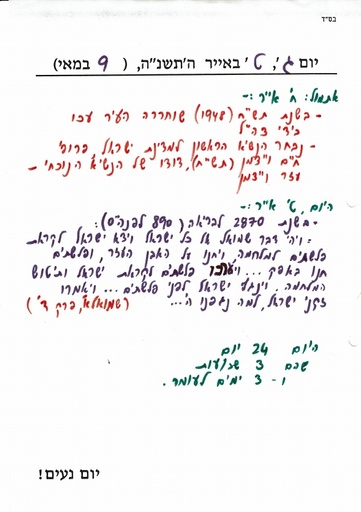 בס״ד
יום ג׳, ט׳ באייר ה׳תשנ״ה, ( 9 במאי)
אתמול: ח׳ אייר:-
- בשנת תש״ח (1948) שוחררה העיר עכו
בידי צה״ל
- נבחר הנשיא הראשון למדינת ישראל פרופ׳
חיים וייצמן (תש״ח), דודו של הנשיא הנוכחי -
עזר וייצמן
היום, ט׳ אייר:-
- בשנת 2870 לבריאה (890 לפנה״ס):
"ויהי דבר שמואל אל כל ישראל ויצא ישראל לקראת
פלשתים למלחמה, ויחנו על האבן העזר, ופלשתים
חנו באפק ... ויערכו פלשתים לקראת ישראל ותיטוש
המלחמה. וינגף ישראל לפני פלשתים ... ויאמרו
זקני ישראל, למה נגפנו ה׳... (שמואל א׳, פרק ד׳)
היום 24 יום
שהם 3 שבועות
ו- 3 ימים לעומר.
יום נעים!